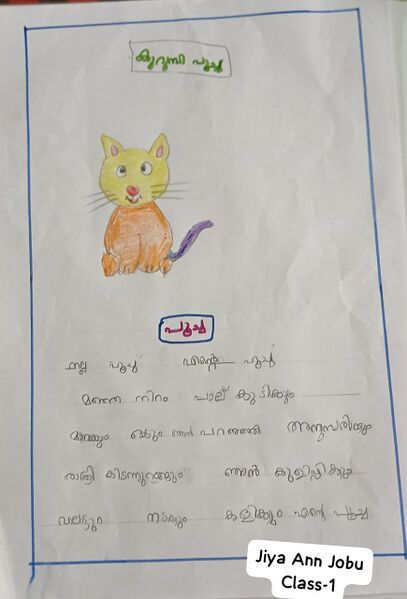 കുറുമ്പി പൂച്ച
പൂച്ച
നല്ല പൂച്ച എന്റെ പൂച്ച
മഞ്ഞ നിറം പാല് കുടിക്കും
ഞാൻ പറഞ്ഞാൽ അനുസരിക്കും
രാത്രി കിടന്നുറങ്ങും ഞാൻ കുളിപ്പിക്കും
നടക്കും കളിക്കും എന്റെ പൂച്ച
Jiya Ann Jobu
Class-1